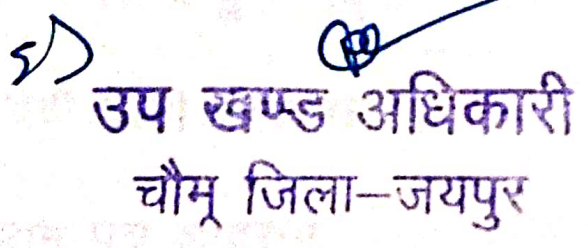 उप खण्ड अधिकारी
चौमू जिला–जयपुर